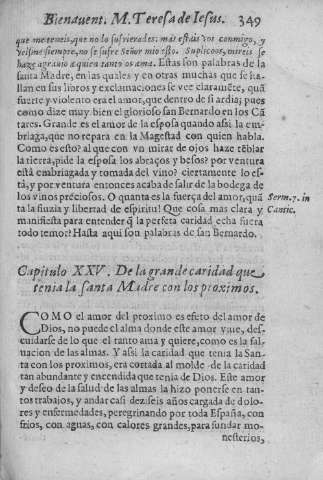 Bienauent. M. Teresa de Iesus. 349
que me teneis, que no lo sufrierades: mas estais vos conmigo, y
veisme siempre, no se sufre Señor mio esto. Suplicoos, mireis se
haze agrauio a quien tanto os ama. Estas son palabras de la
santa Madre, en las quales y en otras muchas que se ha-
llan en sus libros y exclamaciones se vee claramẽte, quã
fuerte y violento era el amor, que dentro de si ardia; pues
como dize muy bien el glorioso san Bernardo en los Cã
tares. Grande es el amor de la esposa quando assi la em-
briaga, que no repara en la Magestad con quien habla.
Como es esto? al que con vn mirar de ojos haze tẽblar
la tierra, pide la esposa los abraços y besos? por ventura
està embriagada y tomada del vino? ciertamente lo es-
tà, y por ventura entonces acaba de salir de la bodega de
los vinos preciosos. O quanta es la fuerça del amor, quã
ta la fiuzia y libertad de espiritu! Que cosa mas clara y
manifiesta para entender q̃ la perfeta caridad echa fuera
todo temor? Hasta aqui son palabras de san Bernardo.
Serm. 7. in
Cantic.
Capitulo XXV. De la grande caridad que
tenia la santa Madre con los proximos.
COMO el amor del proximo es efeto del amor de
Dios, no puede el alma donde este amor viue, des-
cuidarse de lo que el tanto ama y quiere, como es la sal-
uacion de las almas. Y assi la caridad que tenia la San-
ta con los proximos, era cortada al molde de la caridad
tan abundante y encendida que tenia de Dios. Este amor
y deseo de la salud de las almas la hizo ponerse en tan-
tos trabajos, y andar casi deziseis años cargada de dolo-
res y enfermedades, peregrinando por toda España, con
frios, con aguas, con calores grandes, para fundar mo-
nesterios,